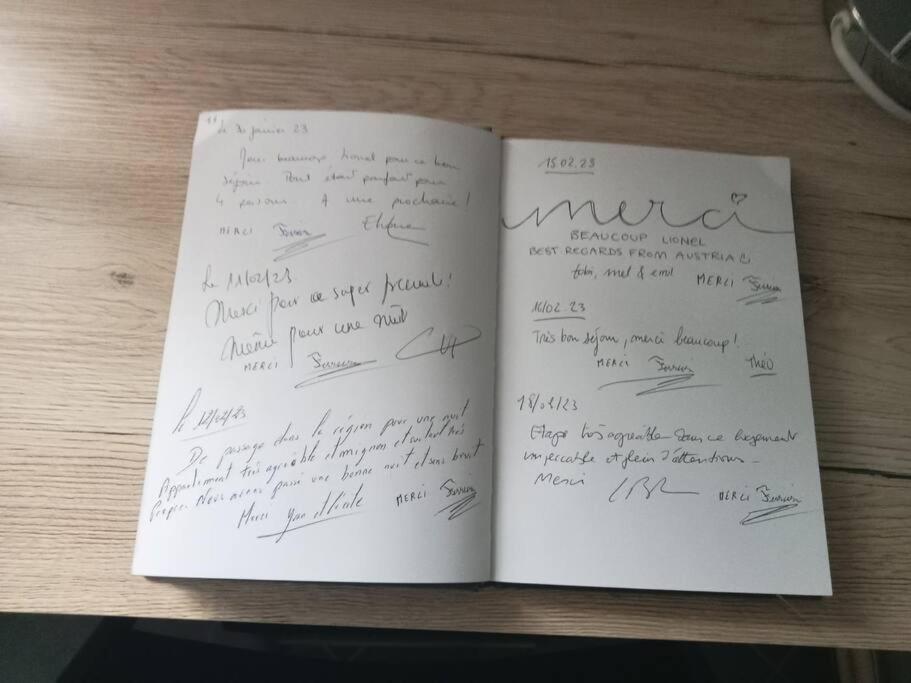 Le 30 janvier 23
Merci beaucoup Lionel pour ce bon
séjour. Tout était parfait pour
4 personnes. A une prochaine !
MERCI
Le 11/02/23
Merci pour ce super accueil !
Même pour une nuit
MERCI
le 12/02/23
De passage dans la région pour une nuit
Appartement très agréable et mignon et surtout très
Propre. Nous avons passé une bonne nuit et sans bruit
Merci
MERCI
15.02.23
merci
BEAUCOUP LIONEL
BEST REGARDS FROM AUSTRIA
tobi, mel & emil MERCI
16/02.23
Très bon séjour, merci beaucoup !
MERCI Théo
18/02/23
Etape très agréable dans ce logement
impeccable et plein d'attentions.
Merci
MERCI